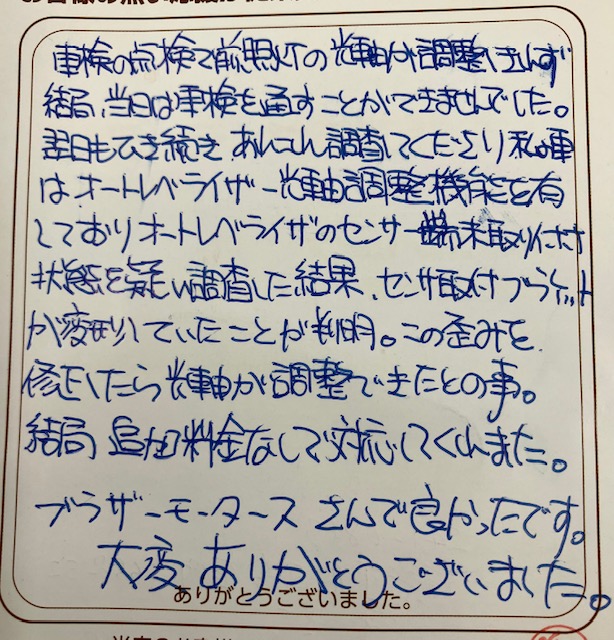 車検の点検で前照灯の光軸が調整しきれず
結局、当日は車検を通すことができませんでした。
翌日もひき続き、あれこれ調査してくださり私の車
はオートレベライザー光軸調整機能を有
しておりオートレベライザのセンサー端末取り付け
状態を疑い調査した結果、センサ取付ブラケット
が変形していたことが判明。この歪みを
修正したら光軸が調整できたとの事。
結局、追加料金なしで対応してくれました。
ブラザーモータースさんで良かったです。
大変ありがとうございました。
ありがとうございました。